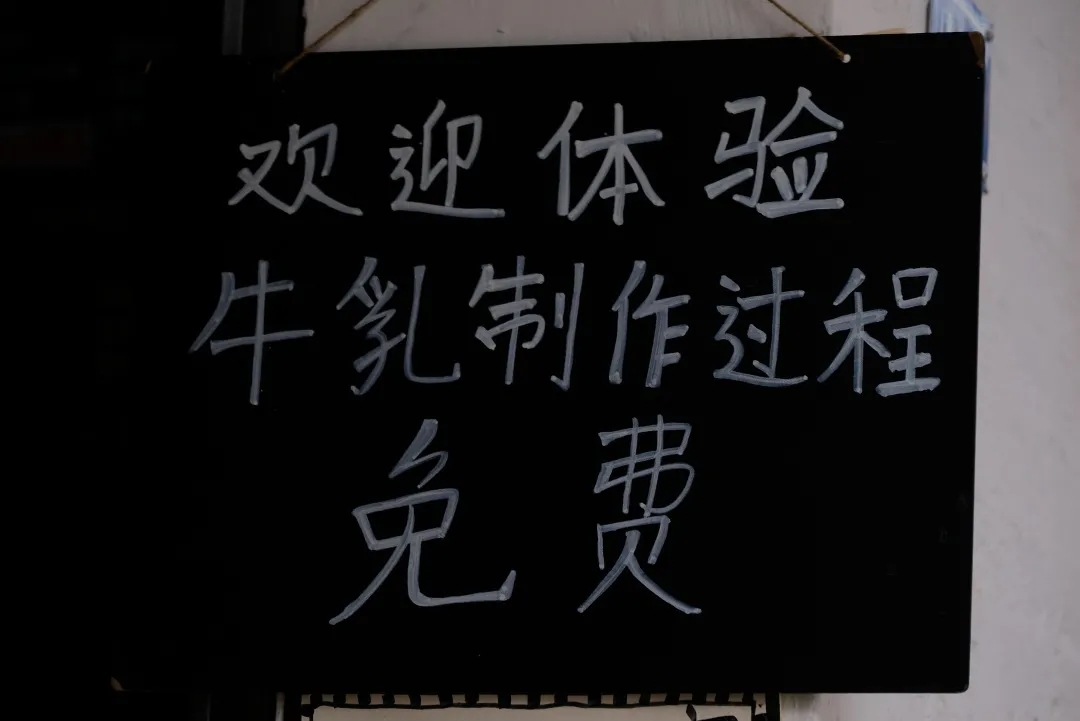 欢迎体验
牛乳制作过程
免费